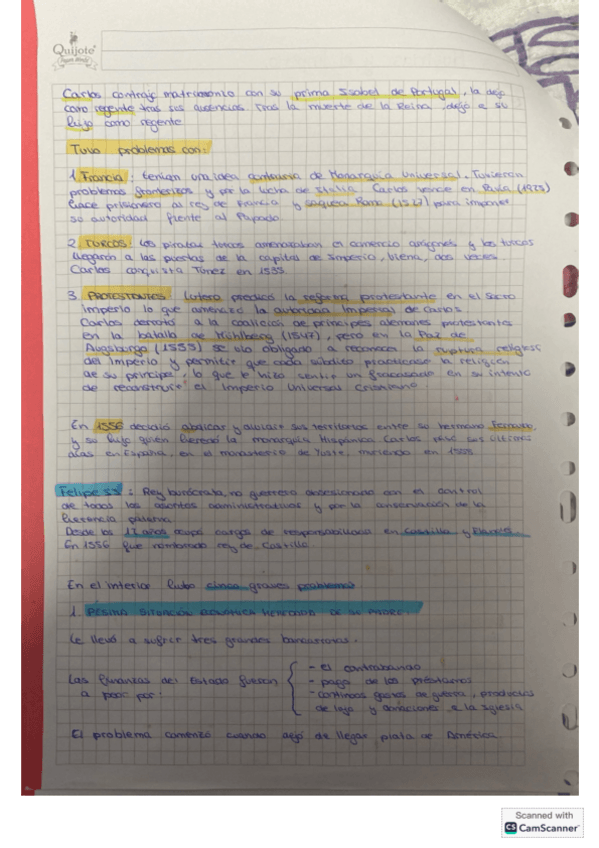 Quijote
Carlos contrajo matrimonio con su prima Isabel de Portugal, la dejó
como regente tras sus ausencias. Tras la muerte de la Reina, dejó a su
hijo como regente
Tuvo problemas con:
1. Francia: tenían una idea contraria de Monarquía Universal. Tuvieron
problemas fronterizos y por la lucha de Italia. Carlos vence en Pavía (1525)
hace prisionero al rey de Francia y saquea Roma (1527) para imponer
su autoridad frente al Papado.
2. TURCOS: Los piratas turcos amenazaban el comercio aragonés y los turcos
llegaron a las puertas de la capital de Imperio, Viena, dos veces.
Carlos conquista Túnez en 1535
3. PROTESTANTES: Lutero predicó la reforma protestante en el Sacro
imperio lo que amenazó la autoridad Imperial de Carlos
Carlos derrotó a la coalición de príncipes alemanes protestantes
en la batalla de Mühlberg (1547), pero en la Paz de
Augsburgo (1555) se vio obligado a reconocer la ruptura religiosa
del Imperio y permitir que cada súbdito practicase la religión
de su príncipe, lo que le hizo sentir un fracasado en su intento
de reconstruir el Imperio Universal Cristiano
En 1556 decidió abdicar y dividir sus territorios entre su hermano Fernando
y su hijo quien heredó la monarquía Hispánica. Carlos pasó sus últimos
días en España, en el monasterio de Yuste, muriendo en 1558
Felipe II: Rey burócrata, no guerrero obsesionado con el control
de todos los asuntos administrativos y por la conservación de la
herencia paterna
Desde los 12 años ocupa cargos de responsabilidad en Castilla y
En 1556 fue nombrado rey de Castilla.
En el interior hubo cinco graves problemas
1. PÉSIMA SITUACIÓN ECONÓMICA HEREDADA DE SU PADRE:
Le llevó a sufrir tres grandes bancarrotas.
Las finanzas del Estado fueron
a peor por:
- el contrabando
- pago de los préstamos
- continuos gastos de guerra, productos
de lujo y donaciones a la Iglesia
El problema comenzó cuando dejó de llegar plata de América
Scanned with
CS CamScanner